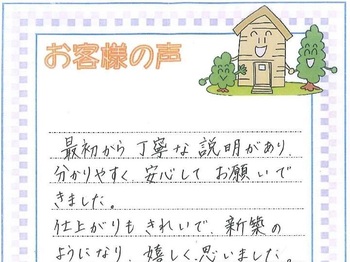 お客様の声
最初から丁寧な説明があり、
分かりやすく、安心してお願いで
きました。
仕上がりもきれいで、新築の
ようになり、嬉しく思いました。